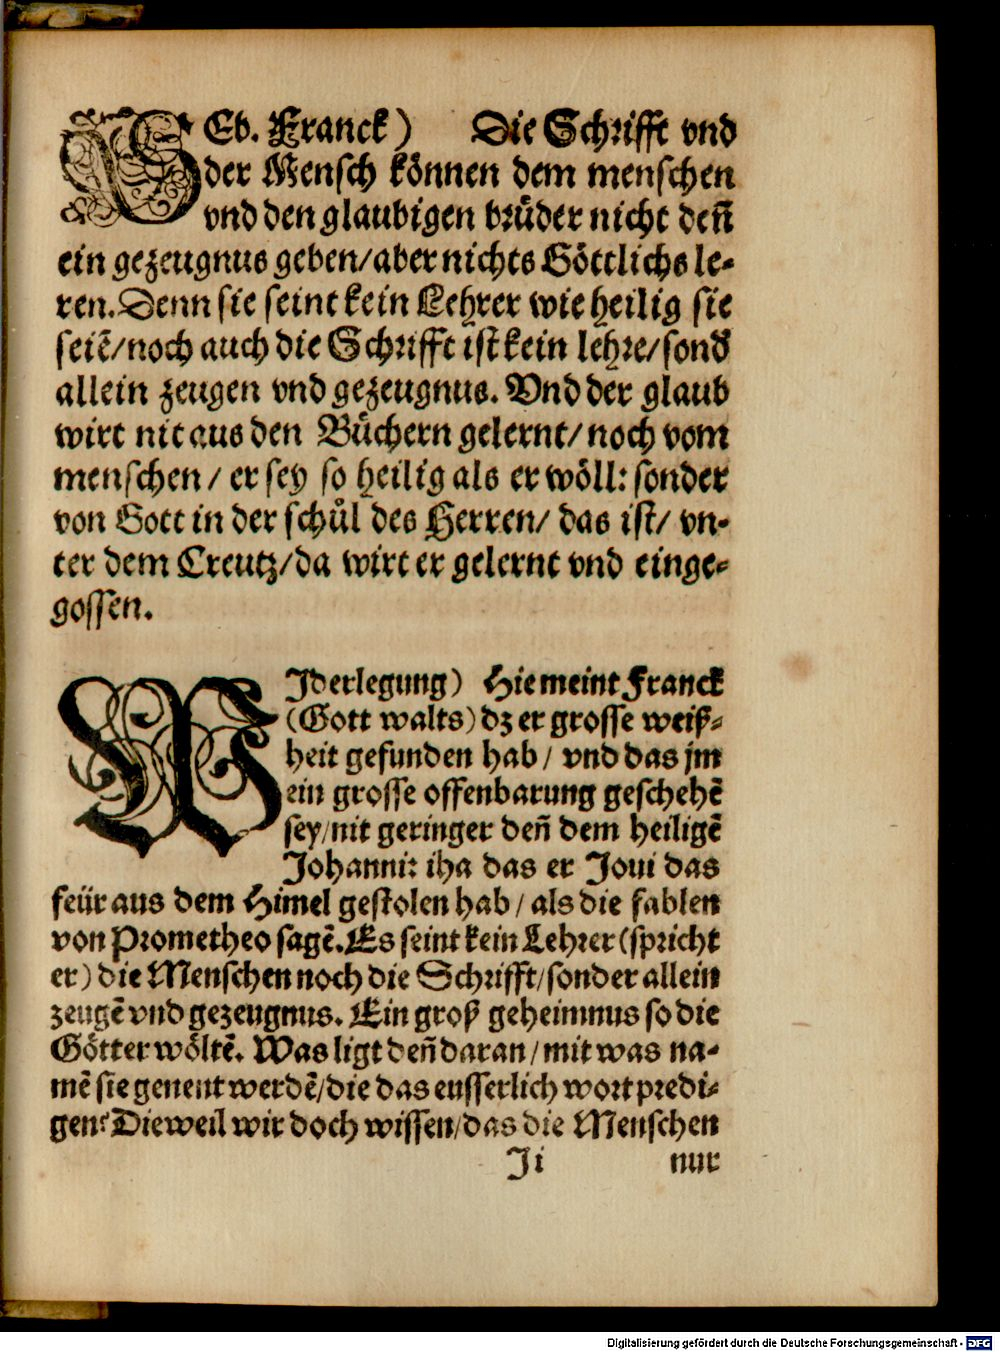 SEb. Franck) Die Schrifft vnd
der Mensch können dem menschen
vnd den glaubigen brůder nicht deñ
ein gezeugnus geben/aber nichts Göttlichs le-
ren. Denn sie seint kein Lehrer wie heilig sie
seiẽ/noch auch die Schrifft ist kein lehre/sond̃
allein zeugen vnd gezeugnus. Vnd der glaub
wirt nit aus den Bůchern gelernt/noch vom
menschen/ er sey so heilig als er wöll: sonder
von Gott in der schůl des Herren/ das ist/ vn-
ter dem Creutz/da wirt er gelernt vnd einge-
gossen.
WJderlegung) Hie meint Franck
(Gott walts) dz er grosse weiß-
heit gefunden hab/ vnd das jm
ein grosse offenbarung geschehẽ
sey/nit geringer deñ dem heiligẽ
Johanni: iha das er Joui das
feür aus dem Himel gestolen hab/ als die fablen
von Prometheo sagẽ. Es seint kein Lehrer (spricht
er) die Menschen noch die Schrifft/sonder allein
zeugẽ vnd gezeugnus. Ein groß geheimnus so die
Götter wöltẽ. Was ligt deñ daran/mit was na-
mẽ sie genent werdẽ/die das eusserlich wort predi-
gen? Dieweil wir doch wissen/das die Menschen
Ji nur
Digitalisierung gefördert durch die Deutsche Forschungsgemeinschaft - DFG